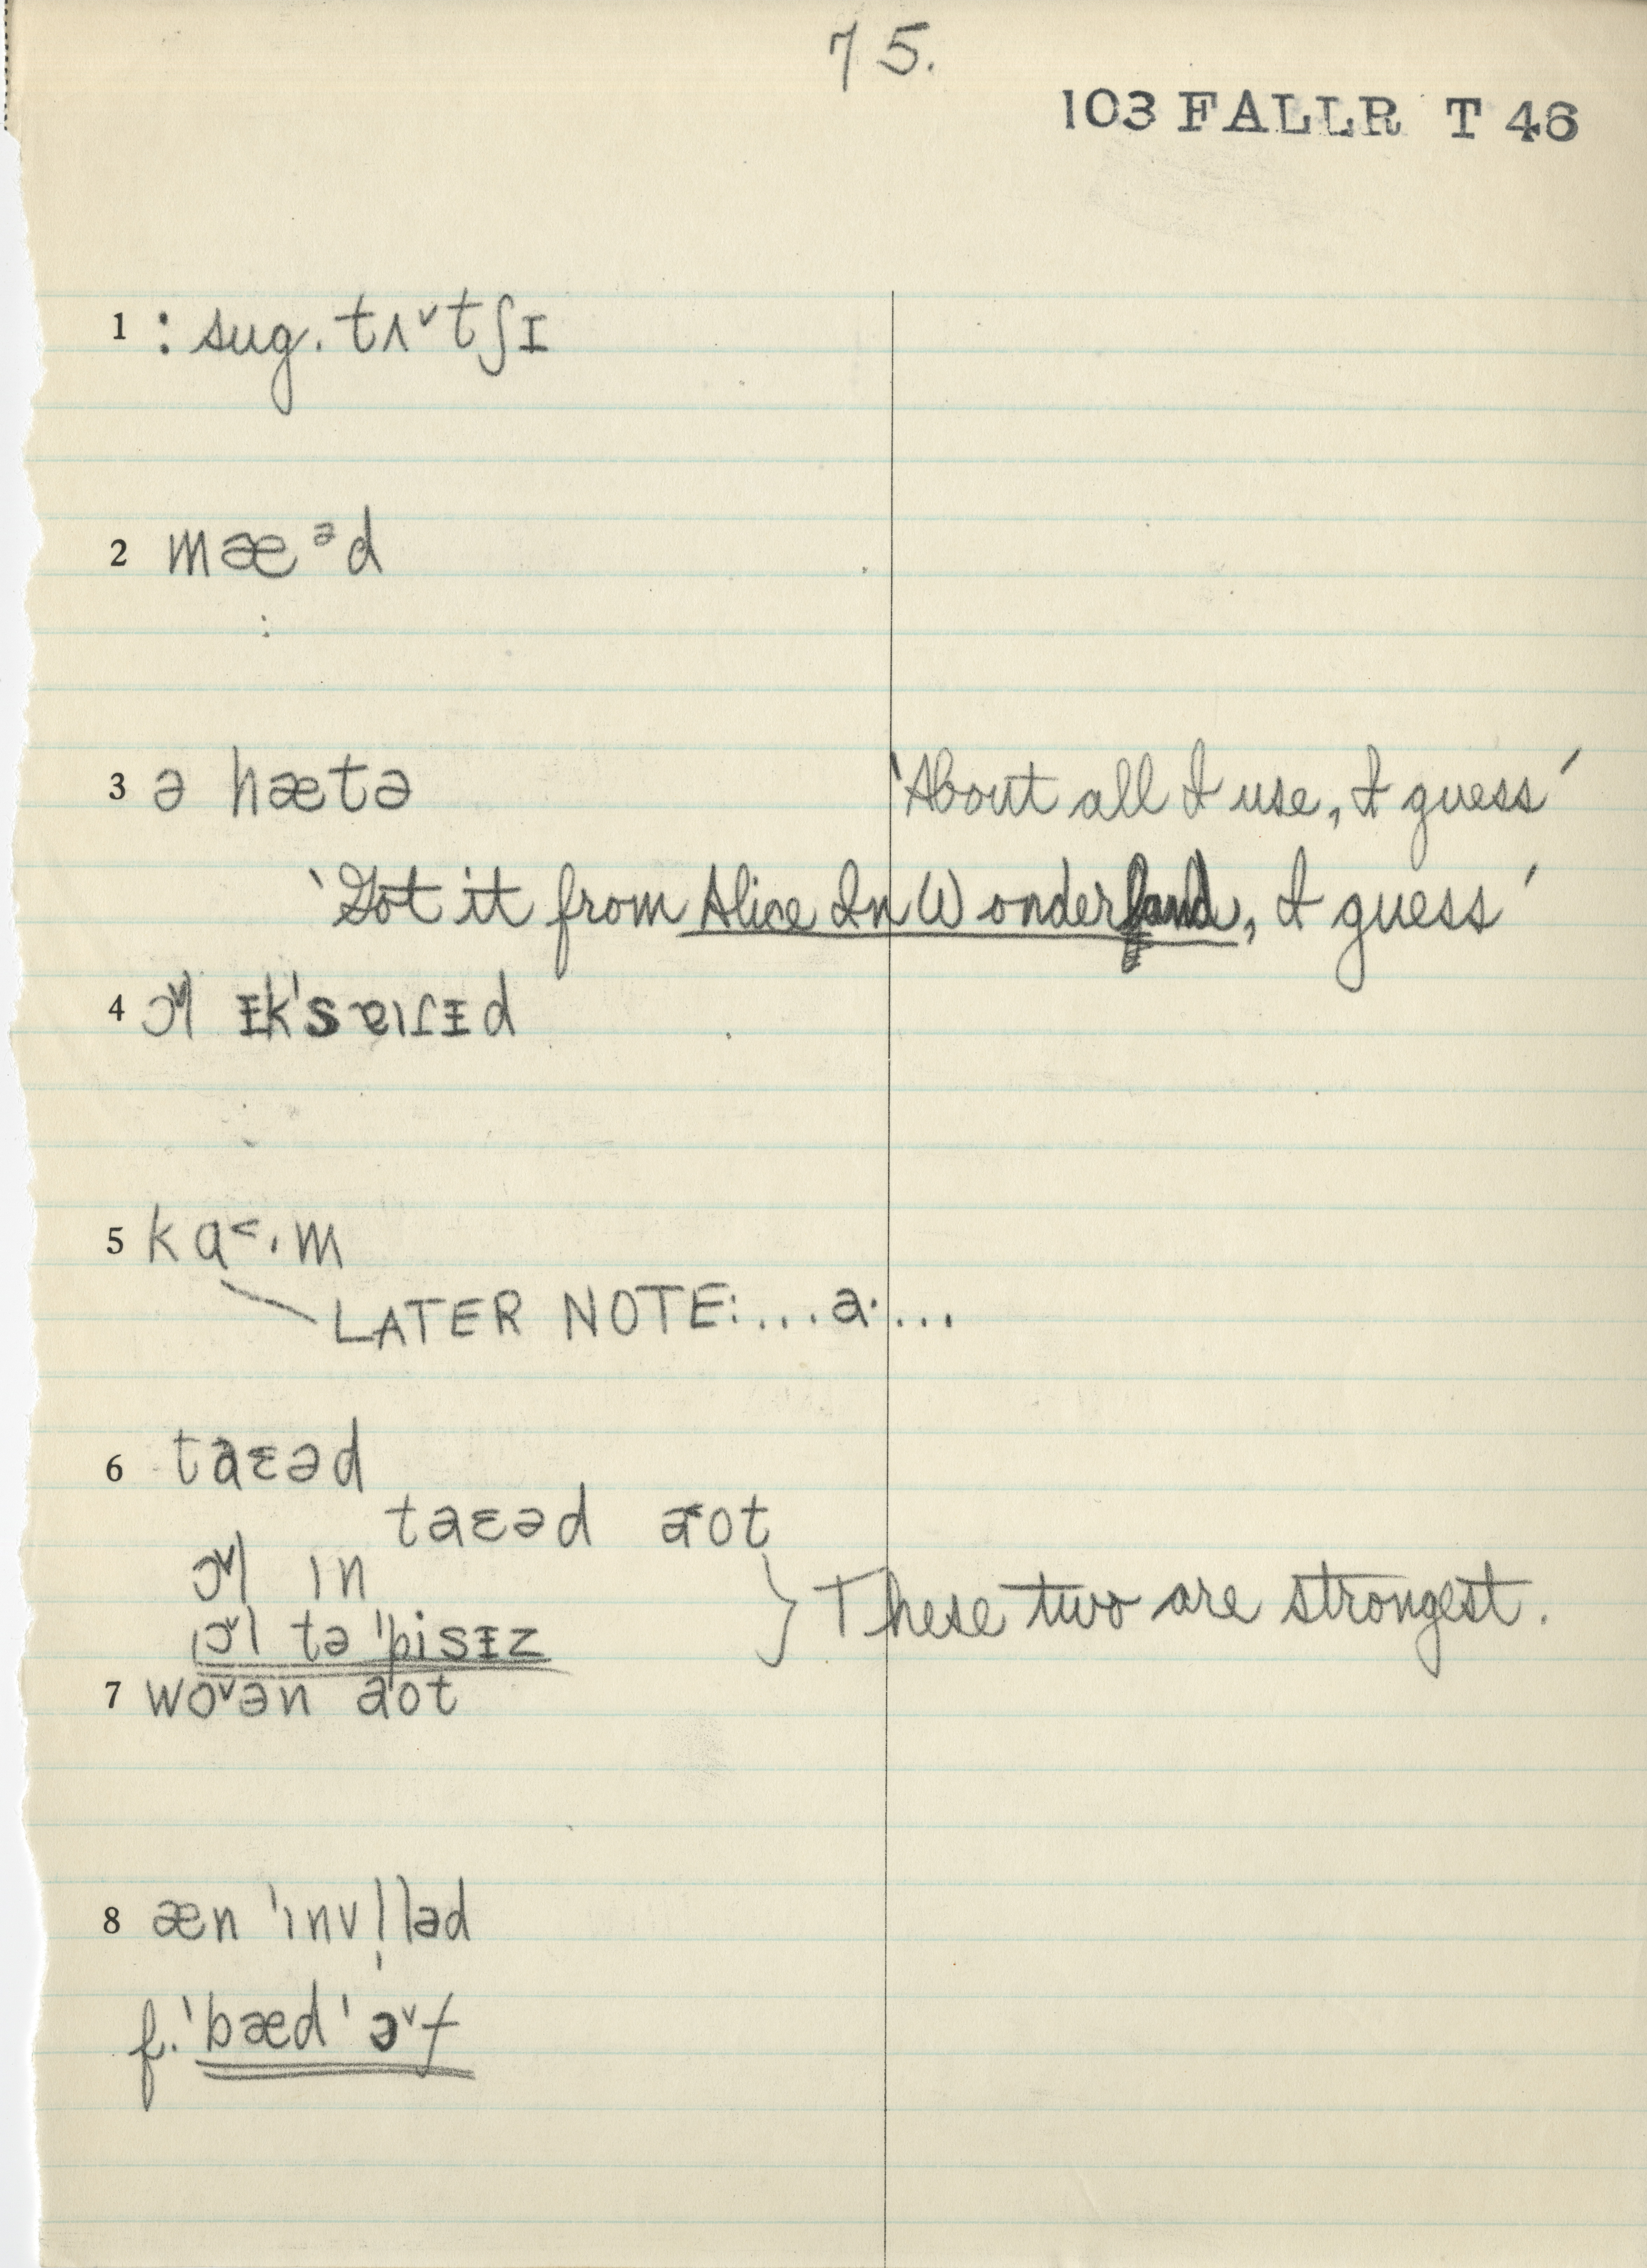 75.
103 FALLR T 46
1 : sug. tʌ˅tʃɪ
2 mæᵊd
:
3 ə hætə 'About all I use, I guess'
'Got it from Alice In Wonderland, I guess'
4 ɔ˅l ɪk'sɐɪɾɪd
5 kɑ˂·m
LATER NOTE:...a·...
6 taɛəd
taɛəd a˂ot
ɔ˅l ın
ɔ˅l tə 'pisɪz } These two are strongest.
7 wo˅ən aot
8 æn 'ınv!ləd
f. 'bæd' ɔ˅f